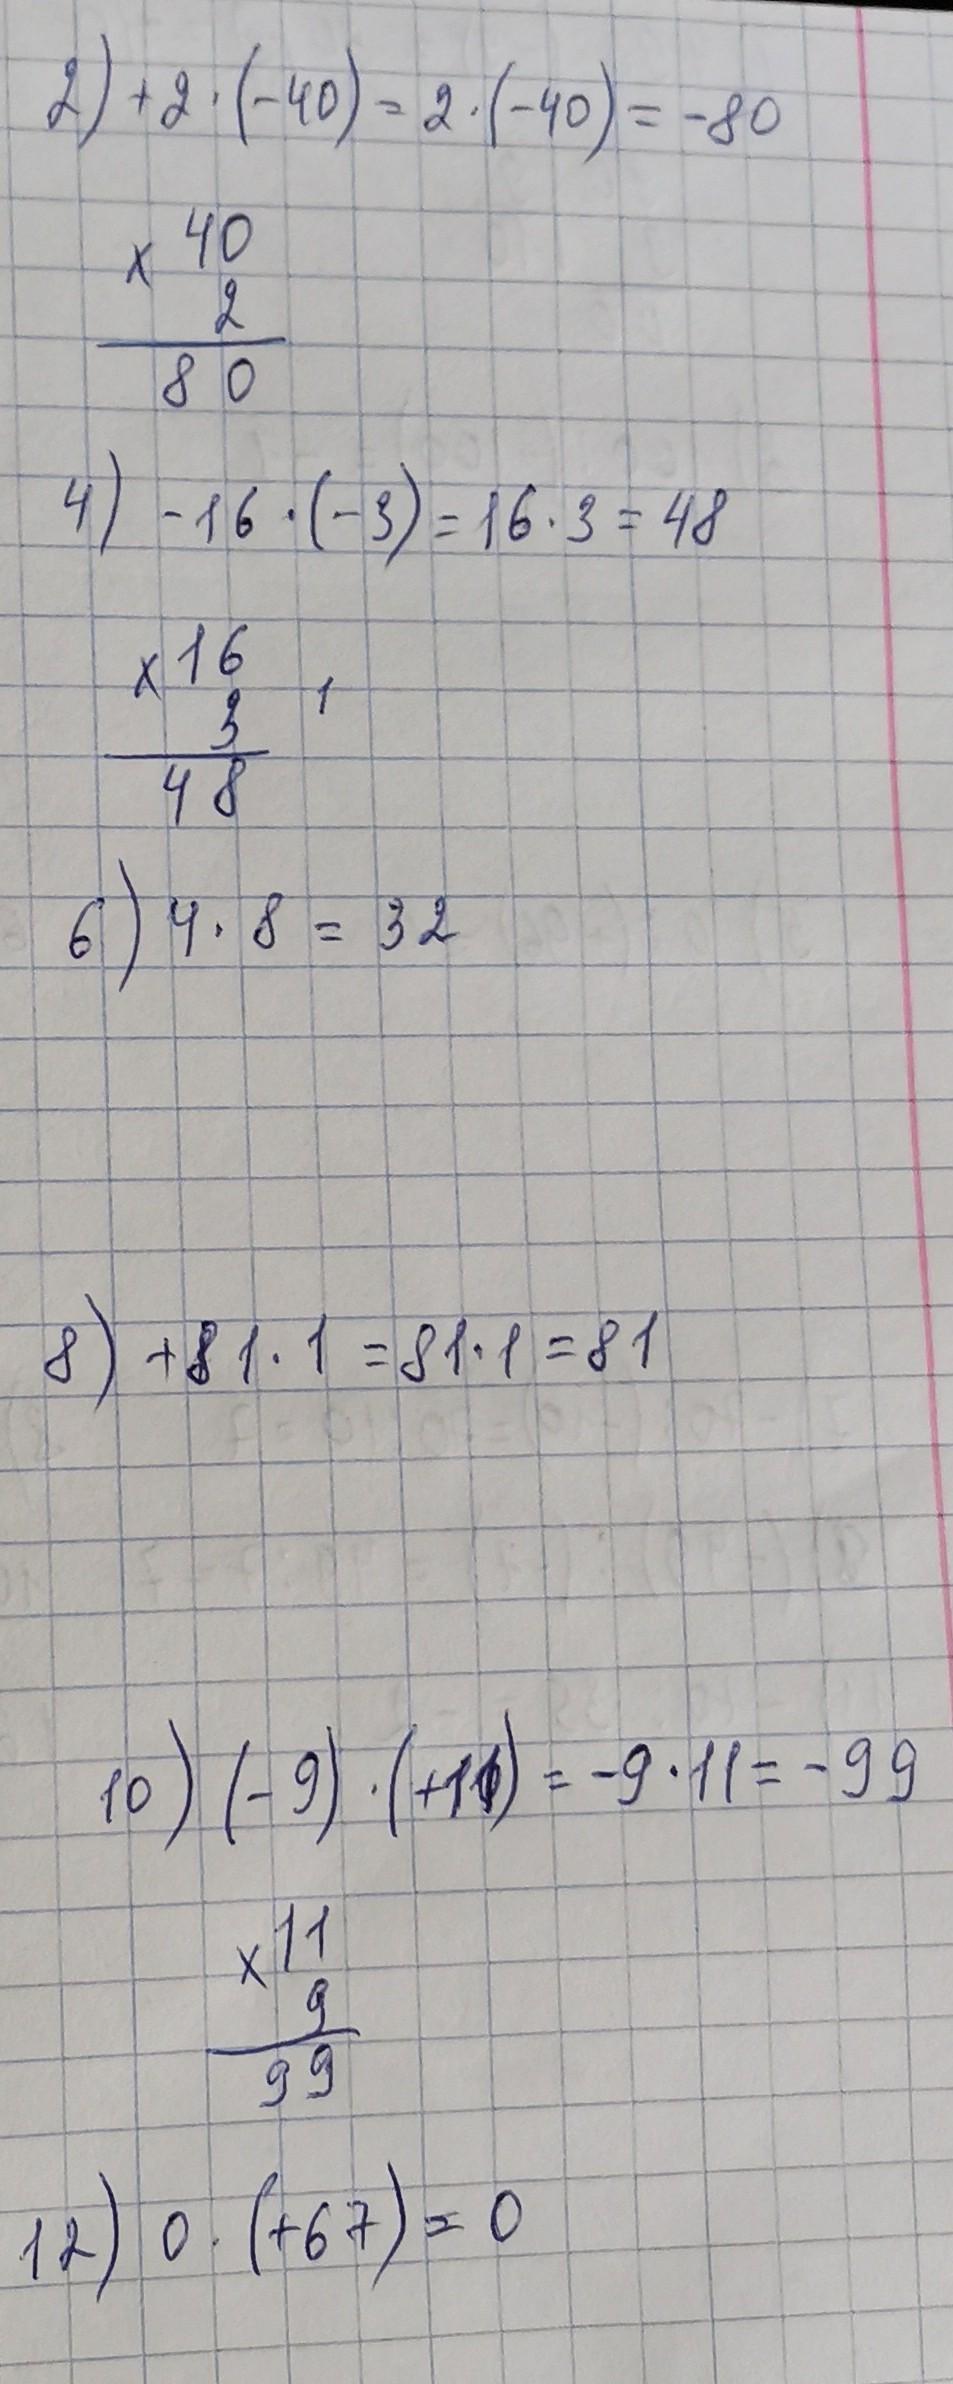 2) +2·(-40) = 2·(-40) = -80
× 40
2
80
4) -16·(-3) = 16·3 = 48
× 16
3 1
48
6) 4·8 = 32
8) +81·1 = 81·1 = 81
10) (-9)·(+11) = -9·11 = -99
× 11
9
99
12) 0·(+67) = 0